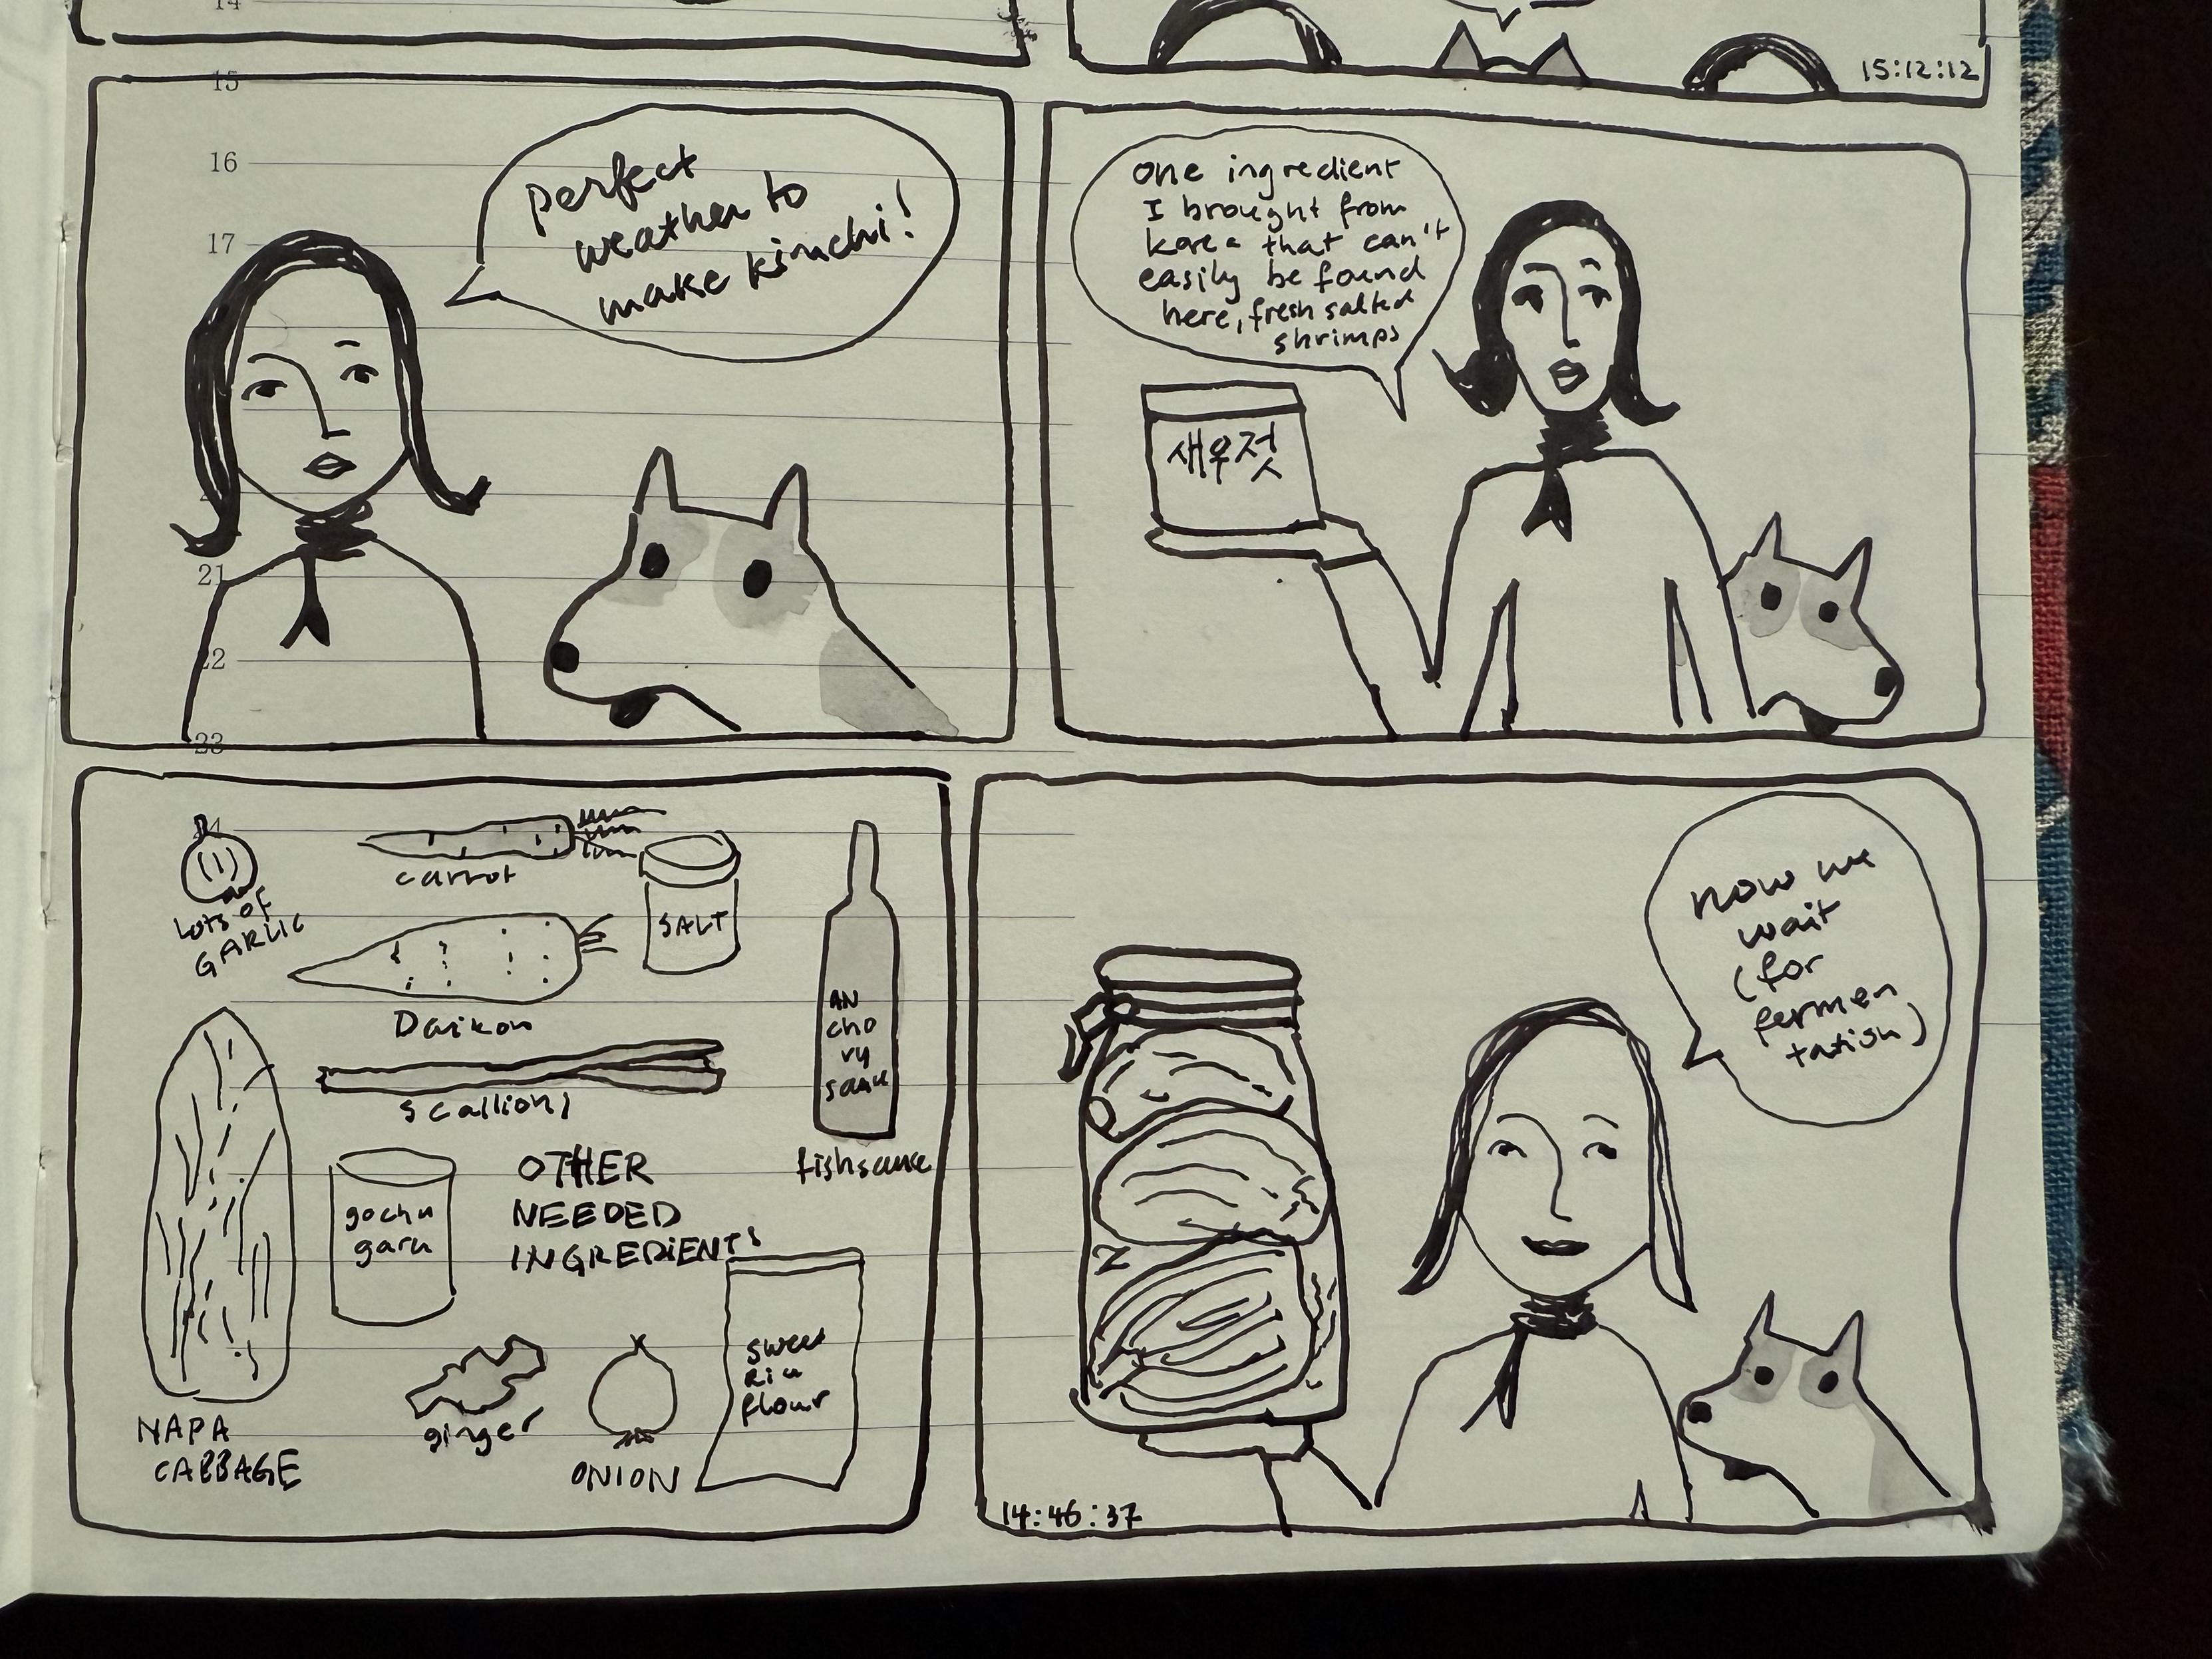 14
15:12:12
15
16
17
21
22
23
perfect
weather to
make kimchi!
One ingredient
I brought from
korea that can't
easily be found
here, fresh salted
shrimps
새우젓
LOTS OF
GARLIC
carrot
SALT
Daikon
AN
cho
vy
sauce
fishsauce
scallions
gochu
garu
OTHER
NEEDED
INGREDIENTS
NAPA
CABBAGE
ginger
ONION
sweet
rice
flour
now we
wait
(for
fermen
tation)
14:46:37